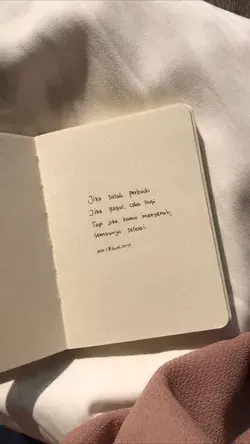 Jika salah perbaiki
Jika gagal, coba lagi
Tapi jika kamu menyerah,
semuanya selesai.